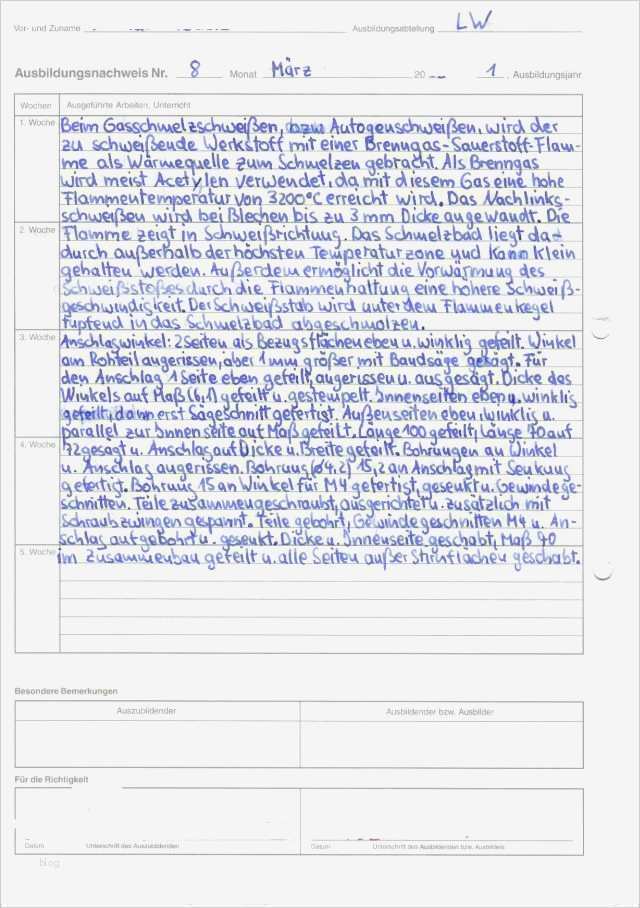 Vor- und Zuname Ausbildungsabteilung LW
Ausbildungsnachweis Nr. 8 Monat März 20 1. Ausbildungsjahr
Wochen Ausgeführte Arbeiten, Unterricht
1. Woche Beim Gasschmelzschweißen, bzw. Autogenschweißen, wird der
zu schweißende Werkstoff mit einer Brenngas-Sauerstoff-Flam-
me als Wärmequelle zum Schmelzen gebracht. Als Brenngas
wird meist Acetylen verwendet, da mit diesem Gas eine hohe
Flammentemperatur von 3200°C erreicht wird. Das Nachlinks-
schweißen wird bei Blechen bis zu 3 mm Dicke angewandt. Die
2. Woche Flamme zeigt in Schweißrichtung. Das Schmelzbad liegt da-
durch außerhalb der höchsten Temperaturzone und kann klein
gehalten werden. Außerdem ermöglicht die Vorwärmung des
Schweißstoßes durch die Flammenhaltung eine höhere Schweiß-
geschwindigkeit. Der Schweißstab wird unter dem Flammenkegel
tupfend in das Schmelzbad abgeschmolzen.
3. Woche Anschlagwinkel: 2 Seiten als Bezugsflächen eben u. winklig gefeilt. Winkel
am Rohteil angerissen, aber 1mm größer mit Bandsäge gesägt. Für
den Anschlag 1 Seite eben gefeilt, angerissen u. ausgesägt. Dicke des
Winkels auf Maß (6,1) gefeilt u. gestempelt. Innenseiten eben u. winklig
gefeilt, dann erst Sägeschnitt gefertigt. Außenseiten eben, winklig u.
parallel zur Innenseite auf Maß gefeilt, Länge 100 gefeilt, Länge 70 auf
4. Woche 72 gesägt u. Anschlag auf Dicke u. Breite gefeilt. Bohrungen an Winkel
u. Anschlag angerissen. Bohrung (ø4,2) 15,2 an Anschlag mit Senkung
gefertigt. Bohrung 15 an Winkel für M4 gefertigt, gesenkt u. Gewinde ge-
schnitten. Teile zusammengeschraubt, ausgerichtet u. zusätzlich mit
Schraubzwingen gespannt. Teile gebohrt, Gewinde geschnitten M4 u. An-
schlag aufgebohrt u. gesenkt. Dicke u. Innenseite geschabt, Maß 70
5. Woche im Zusammenbau gefeilt u. alle Seiten außer Stirnflächen geschabt.
Besondere Bemerkungen
Auszubildender Ausbildender bzw. Ausbilder
Für die Richtigkeit
Datum Unterschrift des Auszubildenden Datum Unterschrift des Ausbildenden bzw. Ausbilders
blog